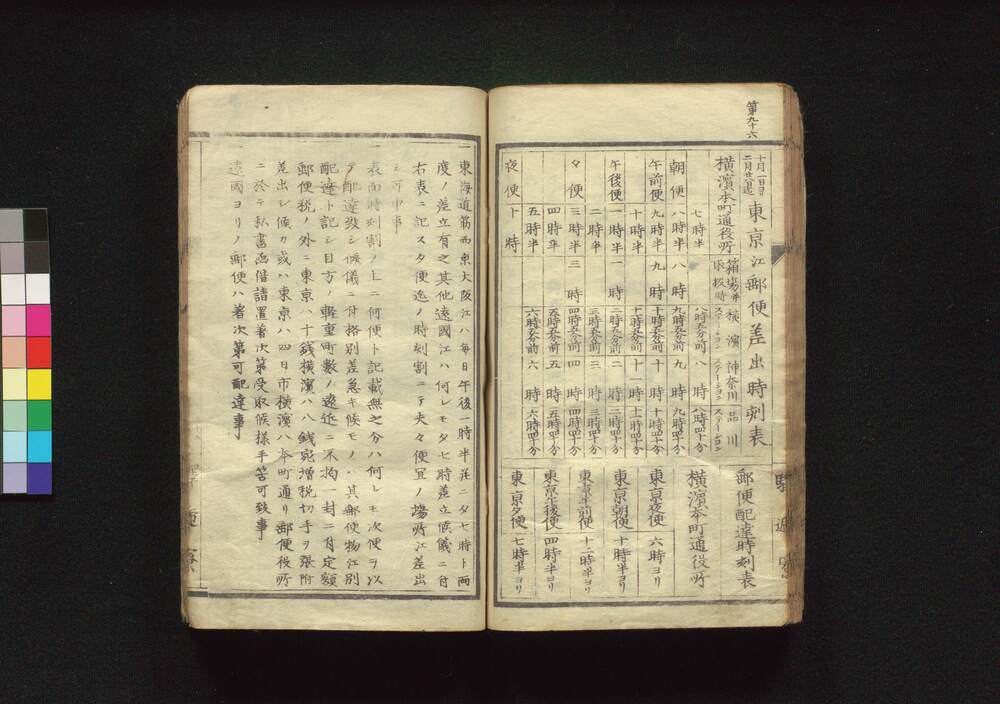 第九十六
東京江郵便差出時刻表
横濱本町通役所
箱場并
横濱
ステーション
神奈川
ステーション
品川
ステーション
七時半
八時
八時四十分
朝便
八時半
八時
九時五分前
九時
九時四十分
午前便
九時半
九時
十時五分前
十時
十時四十分
十時半
十一時五分前
十一時
午後便
一時半
一時
二時五分前
二時
二時四十分
二時半
三時五分前
三時
三時四十分
夕便
三時半
三時
四時五分前
四時
四時四十分
四時半
五時五分前
五時
五時四十分
五時半
六時五分前
六時
六時四十分
夜便
卜時
郵便配達時刻表
横濱本町通役所
東京夜便 六時ヨリ
東京朝便 十時半ヨリ
東京午前便 十二時半ヨリ
東京午後便 四時半ヨリ
東京夕便 七時半ヨリ
驛逓寮
東海道筋西京大阪江ハ毎日午後一時半并ニタ七時ト両
度ノ差立有之其他遠國江ハ何レモタ七時差立候儀ニ付
右表ニ記スタ便迄ノ時刻割ニテ夫々便宜ノ場所江差出
可申事
表面時刻割ノ上ニ何便ト記載無之分ハ何レモ次便ヲ以
テ配達致シ候儀ニ付格別差急キ候モノハ其郵便物江別
配達ト記シ目方ノ軽重町數ノ遠近ニ不拘一封ニ付定額
郵便税ノ外ニ東京ハ十銭横濱ハ八銭宛増税切手ヲ張附
差出シ候カ或ハ東京ハ四日市横濱ハ本町通リ郵便役所
ニ於テ私書凾借請置着次第受取候様手筈可致事
遠國ヨリノ郵便ハ着次第可配達事